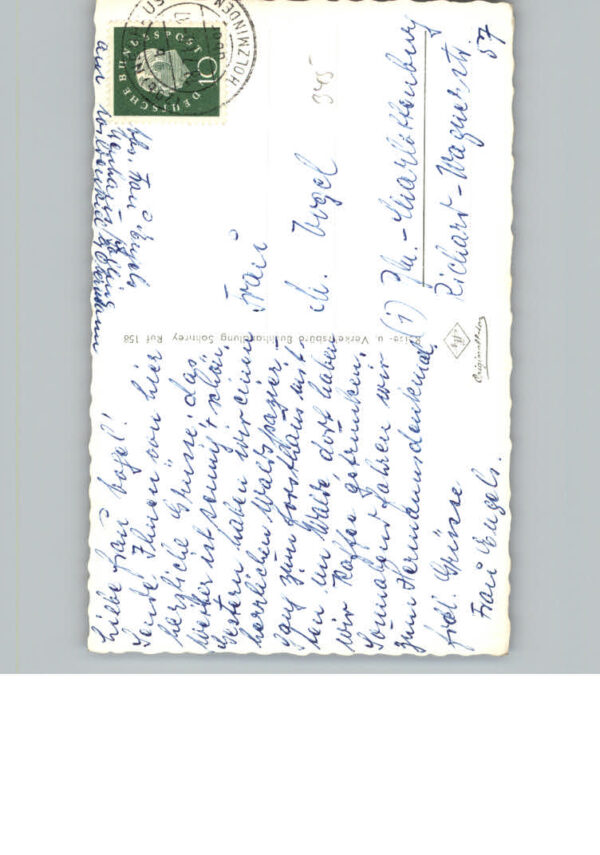 Liebe Frau Vogel!
Sende Ihnen von hier
herzliche Grüsse, das
Wetter ist sonnig & schön,
Gestern haben wir einen
herrlichen Waldspazier-
gang zum Forsthaus mit-
ten im Walde dort haben
wir Kaffee getrunken.
Sonnabend fahren wir
zum Hermannsdenkmal
frdl. Grüsse
Frau Engels.
Abs. Frau Engels
DEUTSCHE BUNDESPOST
10
HOLZMINDEN
345
Frau
M. Vogel
(1) Bln.-Charlottenburg
Richard-Wagnerstr.
57
Reise- u. Verkehrsbüro Buchhandlung Sohnrey Ruf 158